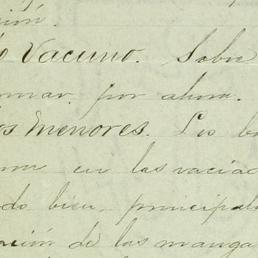 ción.
o Vacuno. Sobre
omar, por ahora.
os menores. Los b
en las vaciad
do bien, principal
ación de las manga